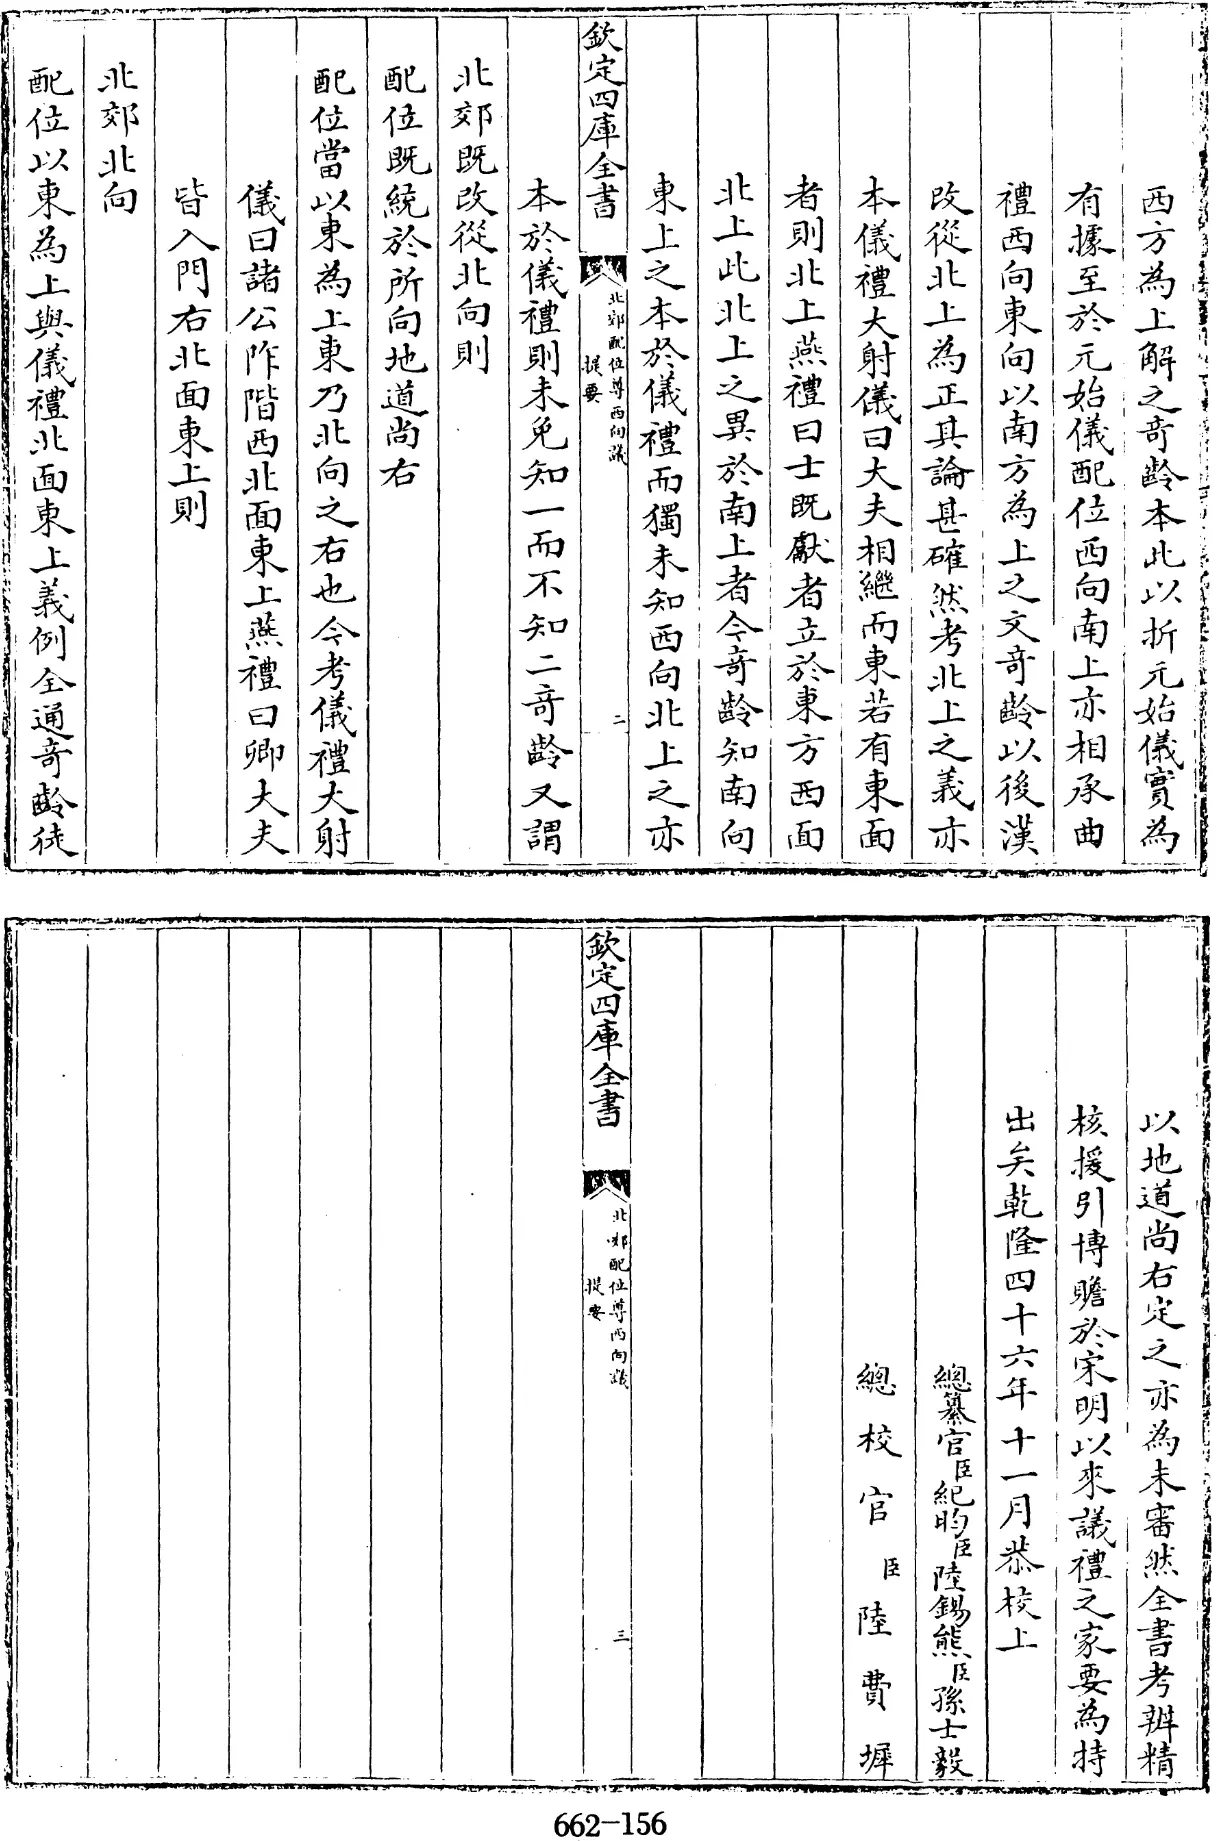 西方為上解之奇齡本此以折元始儀實為
有據至於元始儀配位西向南上亦相承曲
禮西向東向以南方為上之文奇齡以後漢
改從北上為正其論甚確然考北上之義亦
本儀禮大射儀曰大夫相繼而東若有東面
者則北上燕禮曰士既獻者立於東方西面
北上此北上之異於南上者今奇齡知南向
東上之本於儀禮而獨未知西向北上之亦
欽定四庫全書
北郊配位尊西向議
提要
二
本於儀禮則未免知一而不知二奇齡又謂
北郊既改從北向則
配位既統於所向地道尚右
配位當以東為上東乃北向之右也今考儀禮大射
儀曰諸公阼階西北面東上燕禮曰卿大夫
皆入門右北面東上則
北郊北向
配位以東為上與儀禮北面東上義例全通奇齡徒
以地道尚右定之亦為未審然全書考辨精
核援引博贍於宋明以來議禮之家要為特
出矣乾隆四十六年十一月恭校上
總纂官臣紀昀臣陸錫熊臣孫士毅
總校官臣陸費墀
欽定四庫全書
北郊配位尊西向議
提要
三
662-156